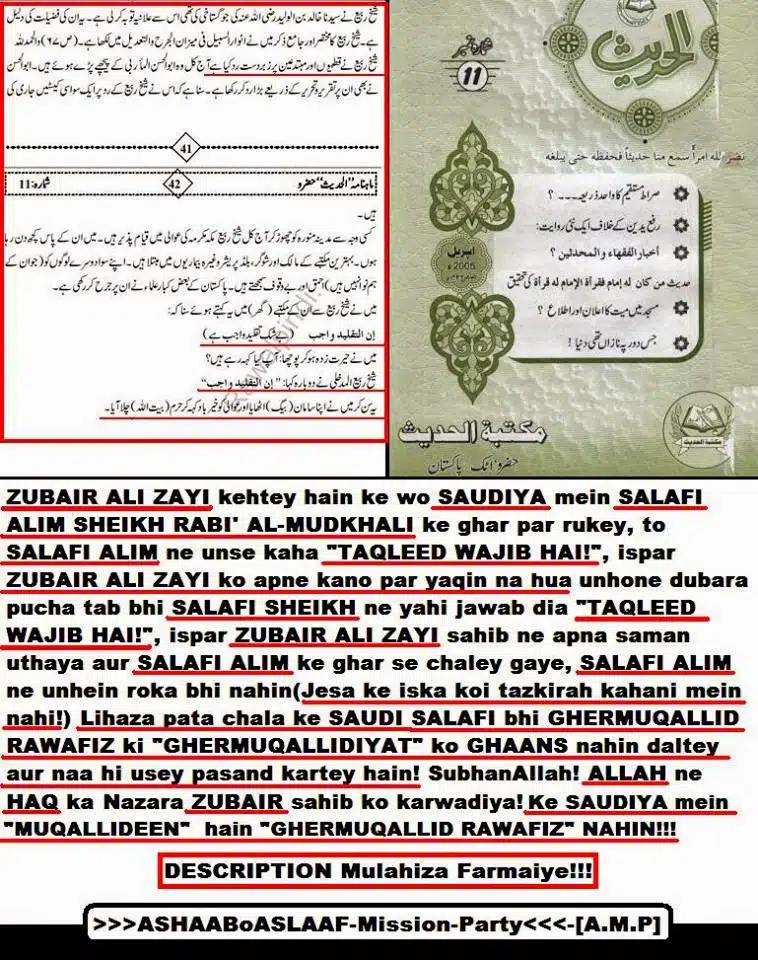 شیخ ربیع نے سیدنا خالد بن الولید رضی اللہ عنہ کی جو گستاخی کی تھی اس سے علانیہ توبہ کرلی ہے۔ یہ ان کی فضیلت کی دلیل
ہے۔ شیخ ربیع کا مختصر اور جامع ذکر میں نے انوار السبیل فی میزان الجرح والتعدیل میں لکھا ہے۔ (ص ۶۷) والحمد للہ
شیخ ربیع نے قطبیوں اور مبتدعین پر زبردست رد کیا ہے آج کل وہ ابوالحسن المأربی کے پیچھے پڑے ہوئے ہیں۔ ابوالحسن
نے بھی ان پر تقریر وتحریر کے ذریعے بڑا رد کر رکھا ہے۔ سنا ہے کہ اس نے شیخ ربیع کے رد پر ایک سو اسی کیسٹیں جاری کی
41
ماہنامہ "الحدیث" حضرو 42 شمارہ: 11
ہیں۔
کسی وجہ سے مدینہ منورہ کو چھوڑ کر آج کل شیخ ربیع مکہ مکرمہ کی عوالی میں قیام پذیر ہیں۔ میں ان کے پاس کچھ دن رہا
ہوں۔ بہترین مکتبے کے مالک اور شوگر، بلڈ پریشر وغیرہ بیماریوں میں مبتلا ہیں۔ اپنے سوا دوسرے لوگوں کو (جو ان کے
ہم نوا نہیں ہیں) احمق اور بے وقوف سمجھتے ہیں۔ پاکستان کے بعض کبار علماء نے ان پر جرح کر رکھی ہے۔
میں نے شیخ ربیع سے ان کے مکتبے (گھر) میں یہ کہتے ہوئے سنا کہ:
إن التقليد واجب (بے شک تقلید واجب ہے)
میں نے حیرت زدہ ہو کر پوچھا: آپ کیا کہہ رہے ہیں؟
شیخ ربیع المدخلی نے دوبارہ کہا: "إن التقليد واجب"
یہ سن کر میں نے اپنا سامان (بیگ) اٹھایا اور عوالی کو خیر باد کہہ کر حرم (بیت اللہ) چلا آیا۔
الحدیث
شمارہ نمبر
11
نضر الله امرأ سمع منا حديثاً فحفظه حتى يبلغه
صراط مستقیم کا واحد ذریعہ۔۔۔ ؟
رفع یدین کے خلاف ایک نئی روایت:
أخبار الفقهاء والمحدثین ؟
حدیث من كان له إمام فقرأة الإمام له قرأة کی تحقیق
مسجد میں میت کا اعلان اور اطلاع ؟
جس دور پہ نازاں تھی دنیا !
اپریل
2005ء
مکتبۃ الحدیث
حضرو، اٹک پاکستان
مکتبۃ الحدیث
ZUBAIR ALI ZAYI kehtey hain ke wo SAUDIYA mein SALAFI
ALIM SHEIKH RABI' AL-MUDKHALI ke ghar par rukey, to
SALAFI ALIM ne unse kaha "TAQLEED WAJIB HAI!", ispar
ZUBAIR ALI ZAYI ko apne kano par yaqin na hua unhone dubara
pucha tab bhi SALAFI SHEIKH ne yahi jawab dia "TAQLEED
WAJIB HAI!", ispar ZUBAIR ALI ZAYI sahib ne apna saman
uthaya aur SALAFI ALIM ke ghar se chaley gaye, SALAFI ALIM
ne unhein roka bhi nahin(Jesa ke iska koi tazkirah kahani mein
nahi!) Lihaza pata chala ke SAUDI SALAFI bhi GHERMUQALLID
RAWAFIZ ki "GHERMUQALLIDIYAT" ko GHAANS nahin daltey
aur naa hi usey pasand kartey hain! SubhanAllah! ALLAH ne
HAQ ka Nazara ZUBAIR sahib ko karwadiya! Ke SAUDIYA mein
"MUQALLIDEEN" hain "GHERMUQALLID RAWAFIZ" NAHIN!!!
DESCRIPTION Mulahiza Farmaiye!!!
>>>ASHAABoASLAAF-Mission-Party<<<-[A.M.P]